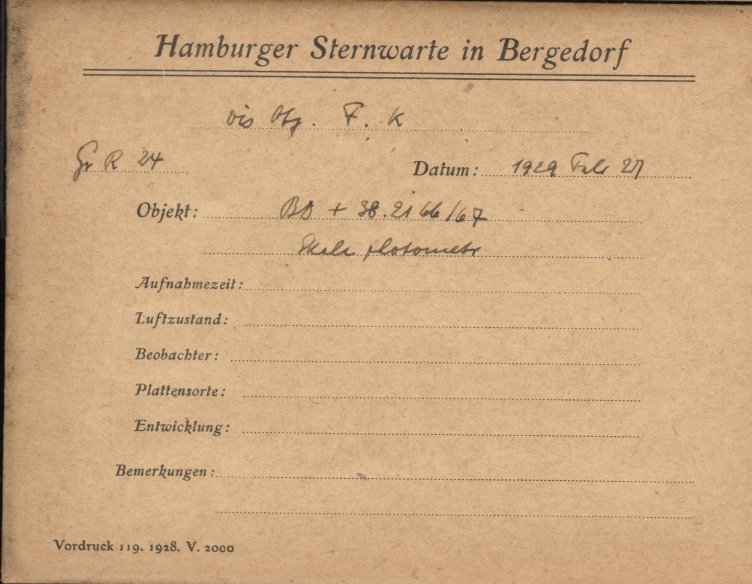 Hamburger Sternwarte in Bergedorf
vis Obj. F. K
Gr R 24
Datum: 1929 Febr 27
Objekt: BD + 38. 2166/67
Skala photometr
Aufnahmezeit:
Luftzustand:
Beobachter:
Plattensorte:
Entwicklung:
Bemerkungen:
Vordruck 119. 1928. V. 2000